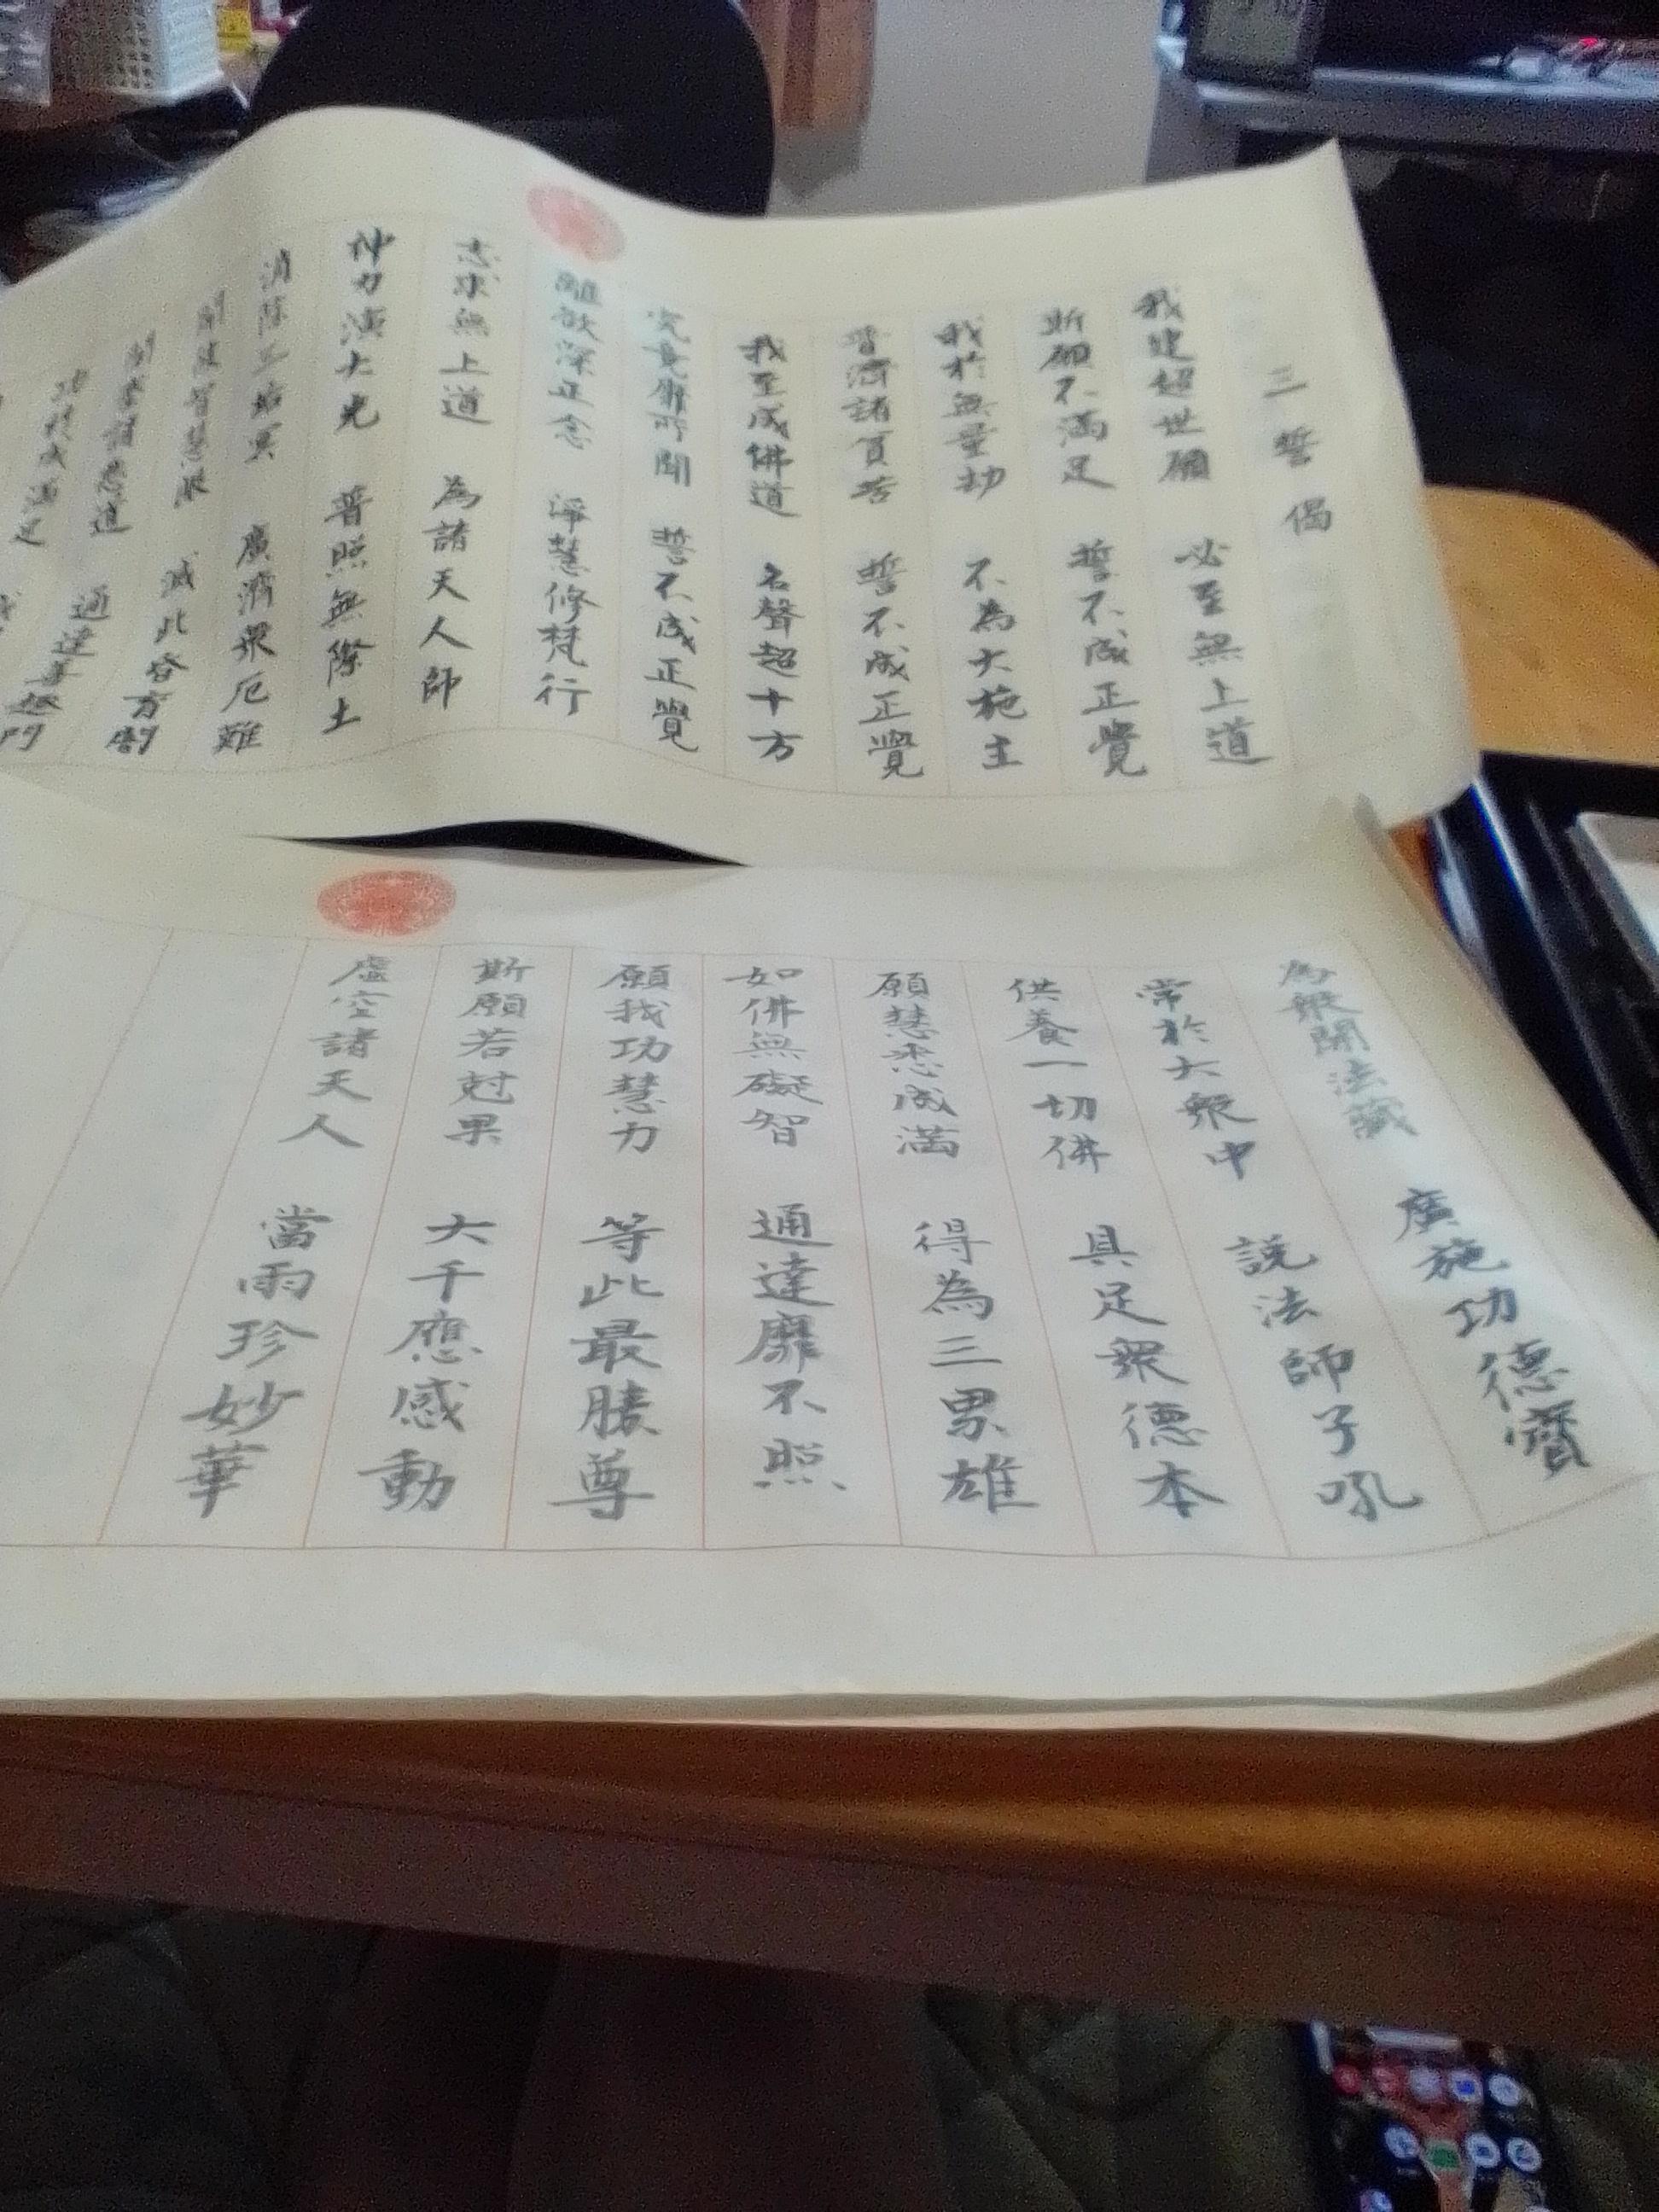 三誓偈
我建超世願 必至無上道
斯願不満足 誓不成正覺
我於無量劫 不為大施主
普濟諸貧苦 誓不成正覺
我至成佛道 名聲超十方
究竟靡所聞 誓不成正覺
離欲深正念 淨慧修梵行
志求無上道 為諸天人師
神力演大光 普照無際土
消除三垢冥 廣濟衆厄難
智慧眼 滅此昏
諸惡道 通達善趣門
成満足
為衆開法藏 廣施功德
常於大衆中 説法師子吼
供養一切佛 具足衆德本
願慧悉成満 得為三界雄
如佛無礙智 通達靡不照
願我功慧力 等此最勝尊
斯願若尅果 大千應感動
虚空諸天人 當雨珍妙華